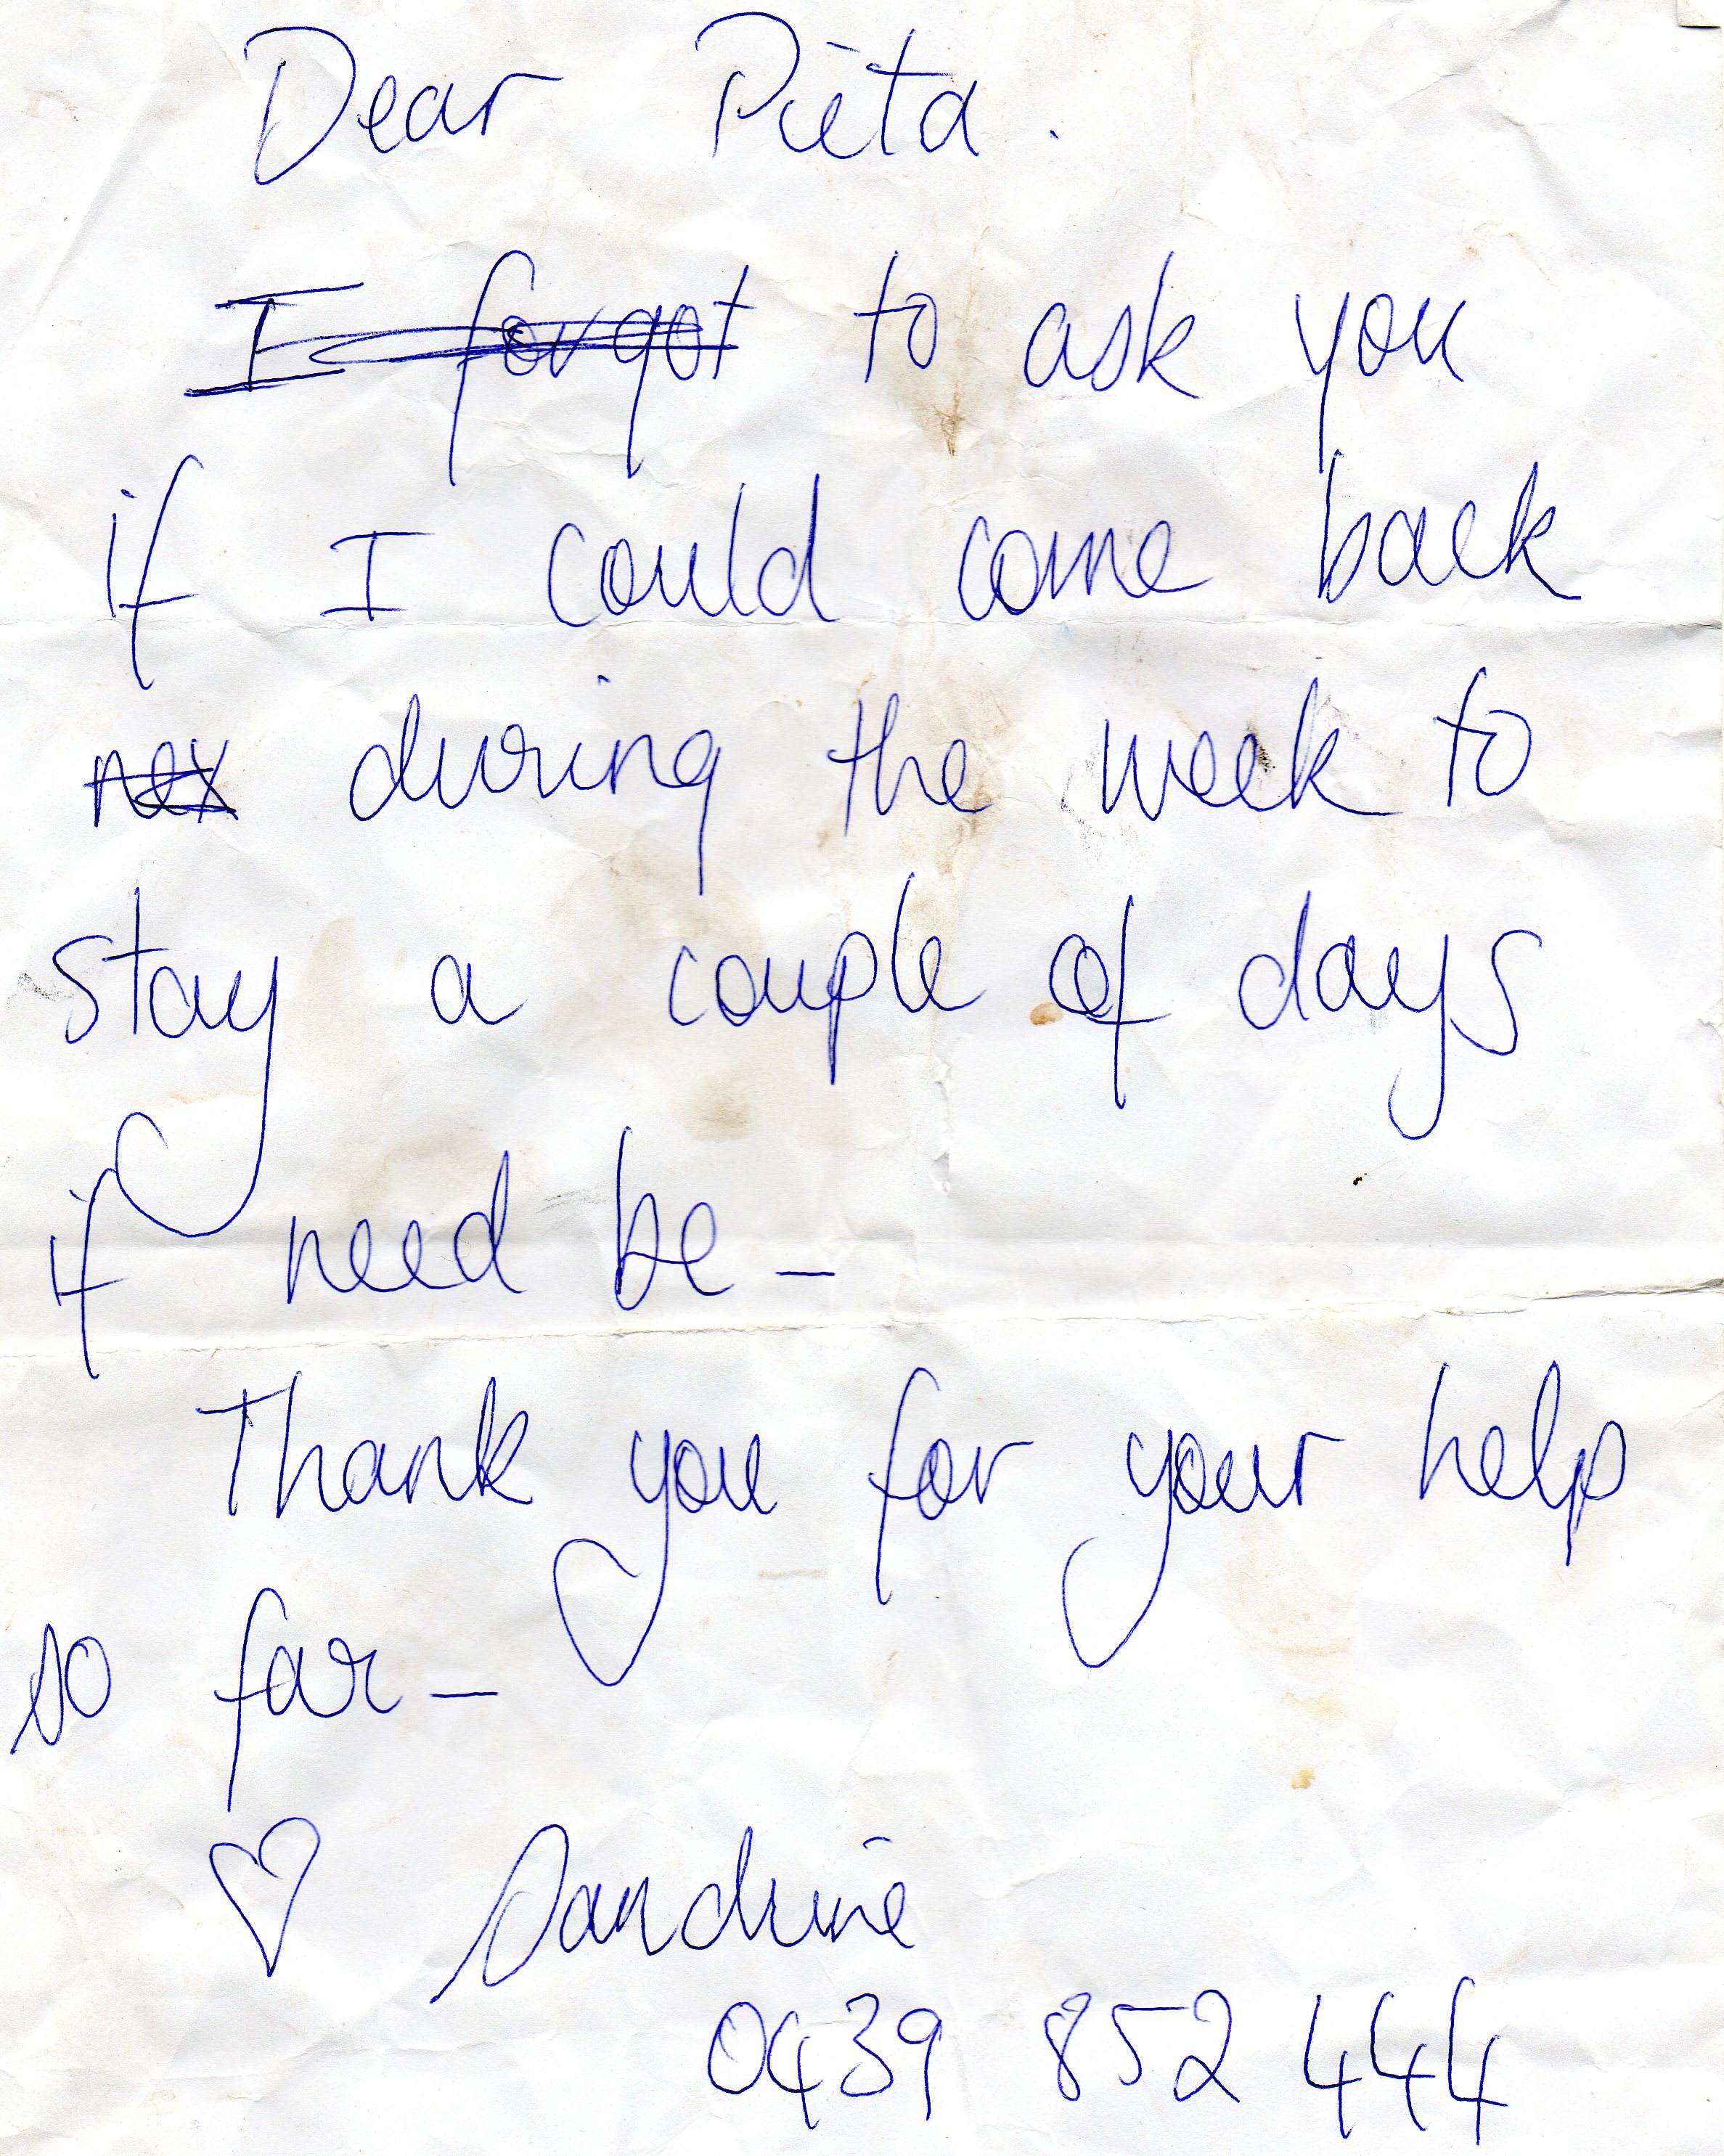 Dear Pieta.
I forgot to ask you
if I could come back
nex during the week to
stay a couple of days
if need be -
Thank you for your help
so far -
♡ Sandrine
0439 852 444